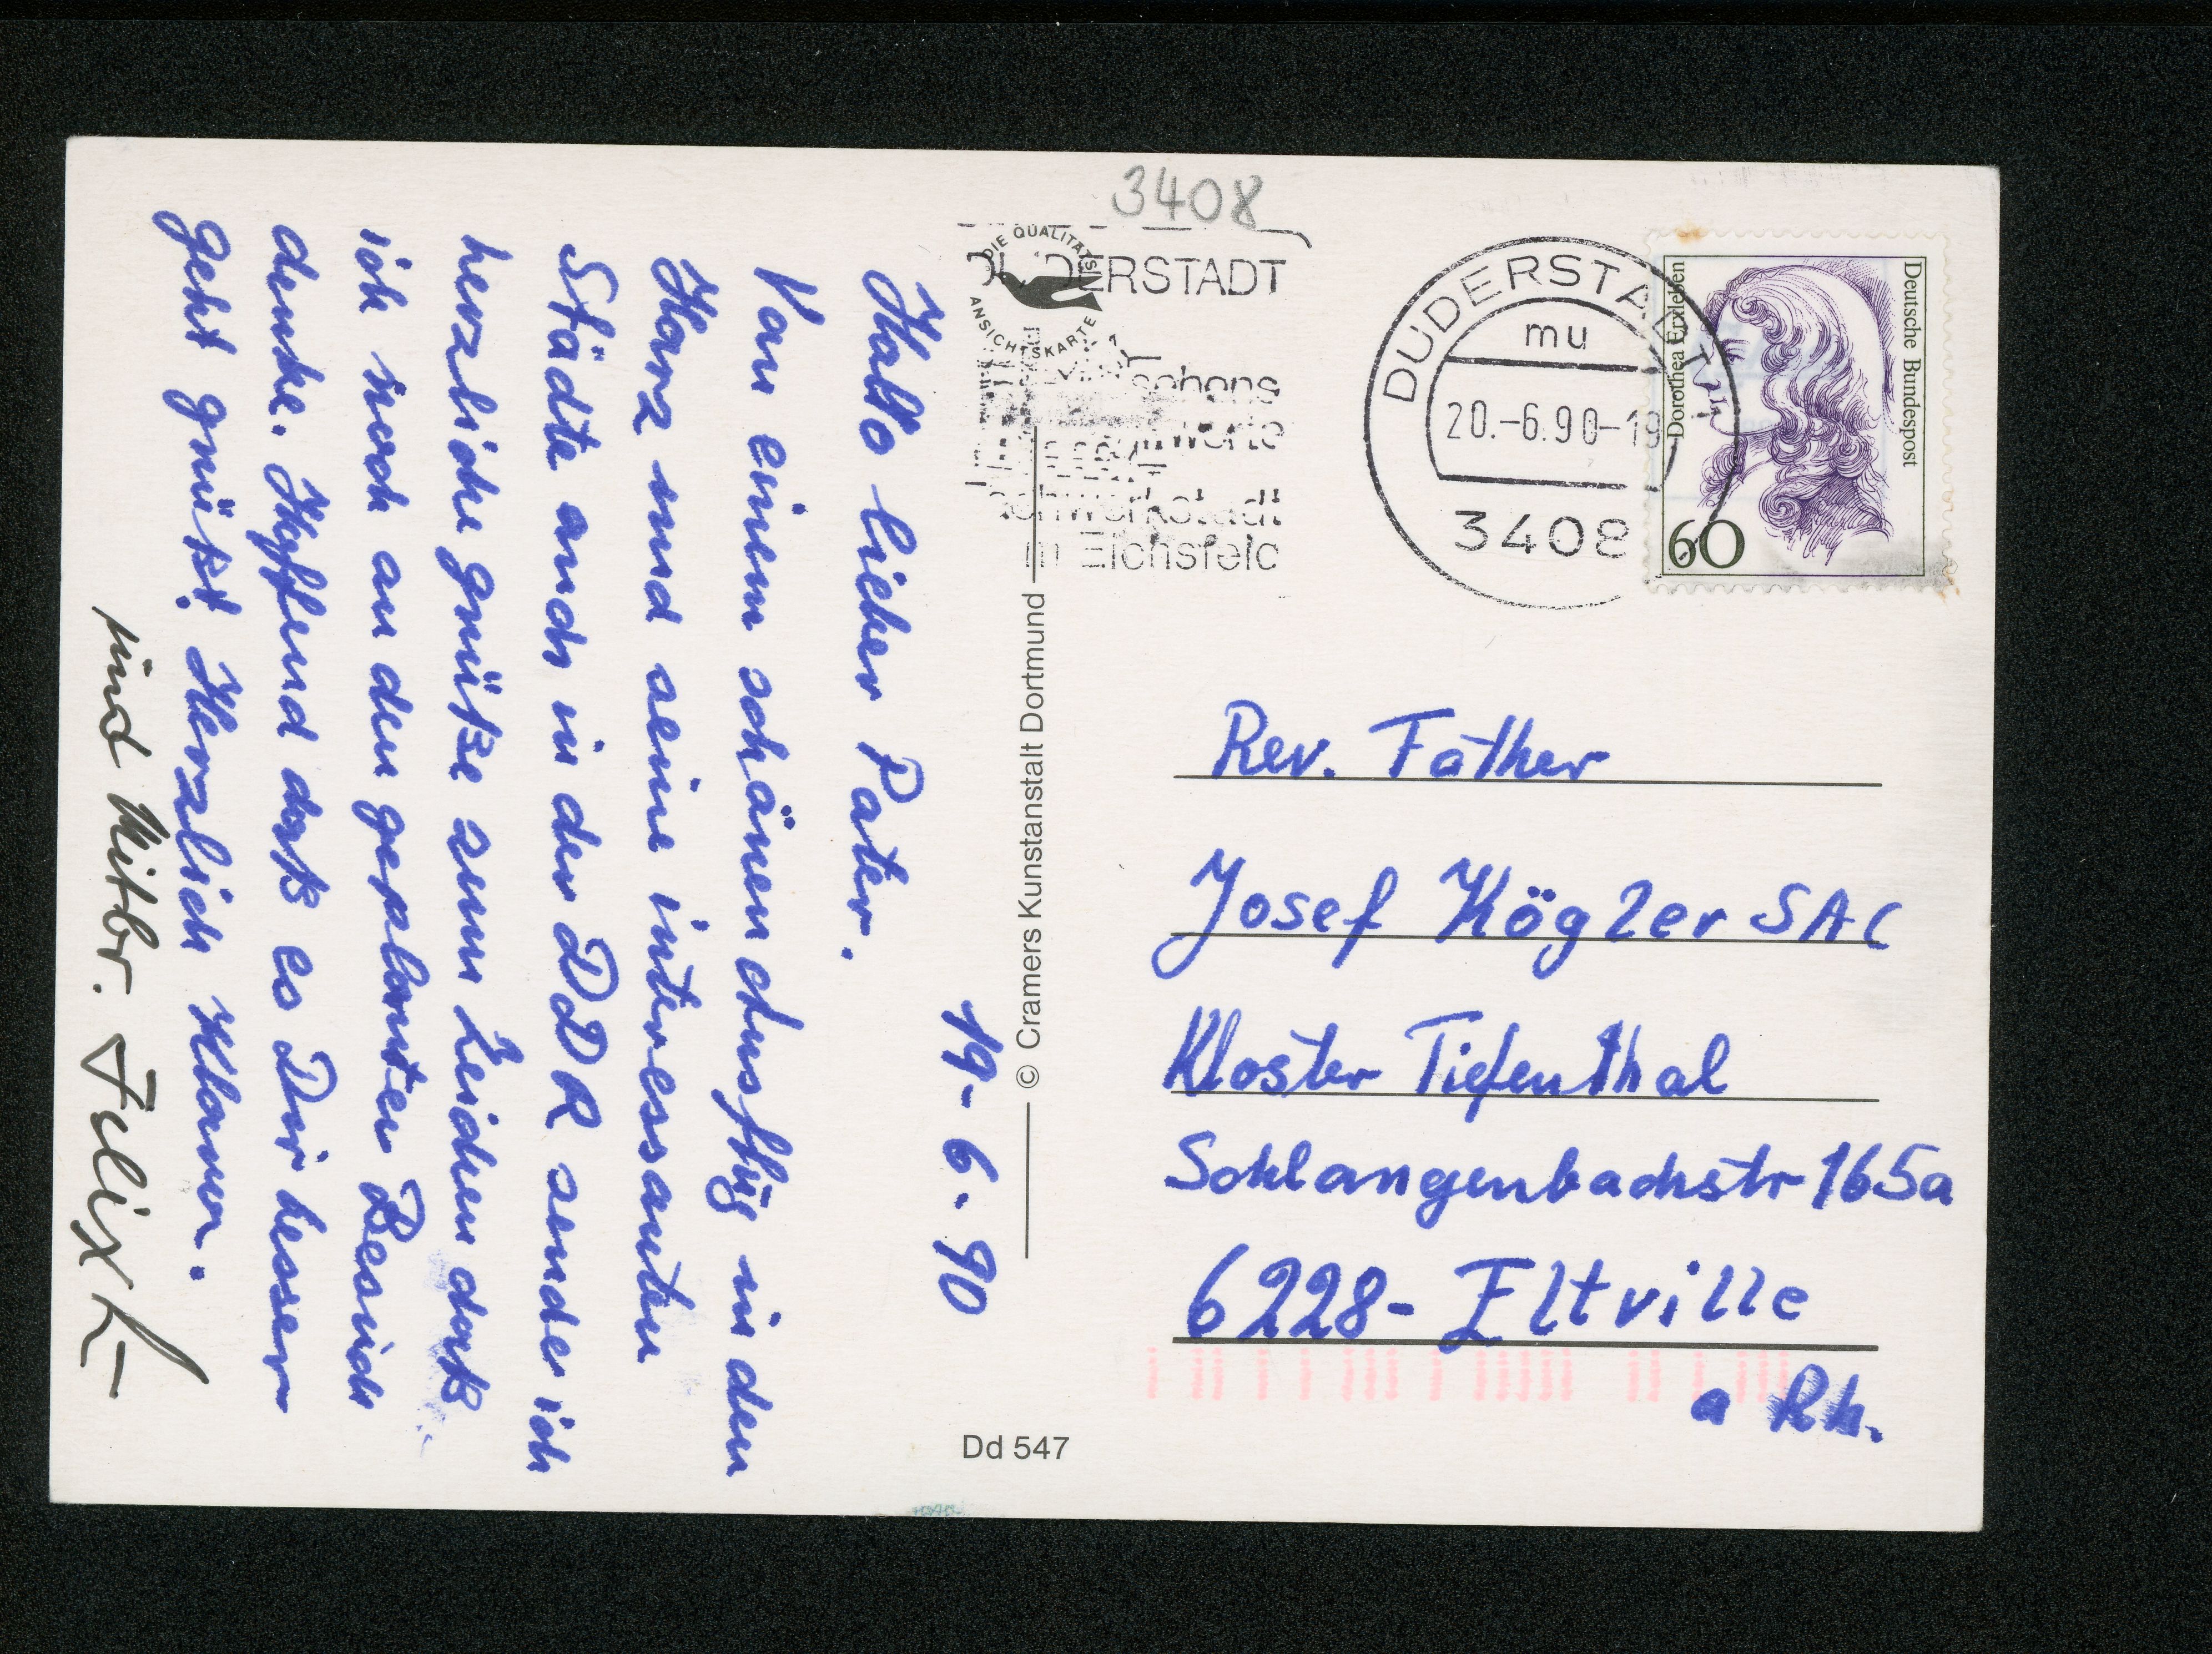 3408
DIE QUALITÄTS
ANSICHTSKARTE
DUDERSTADT
sehens
werte
Fachwerkstadt
im Eichsfeld
DUDERSTADT
mu
20.-6.90-19
3408
Deutsche Bundespost
Dorothea Erxleben
60
19-6.90
Hallo lieber Pater.
Von einem schönen Ausflug in den
Harz und seine interessanten
Städte auch in der DDR sende ich
herzliche grüße zum Zeichen daß
ich noch an den geplanten Besuch
denke. Hoffend daß es Dir besser
geht grüßt Herzlich Klaus.
und Mitbr. Felix
© Cramers Kunstanstalt Dortmund
Dd 547
Rev. Father
Josef Kögler SAC
Kloster Tiefenthal
Schlangenbachstr 165a
6228- Eltville
a Rh.